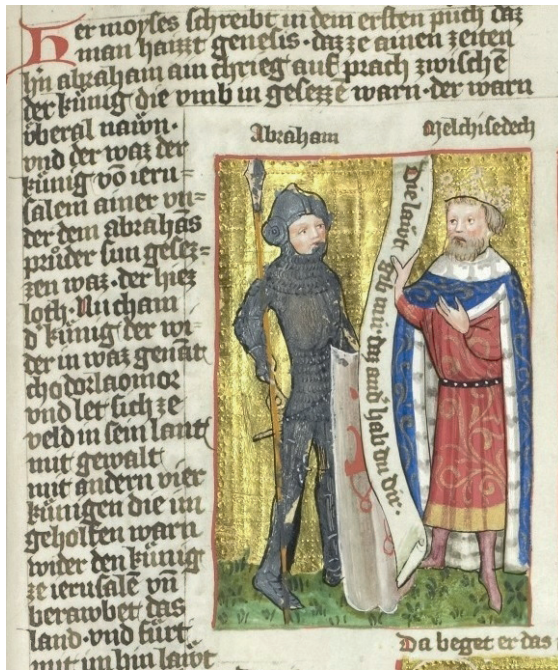 Her moyses schreibt in dem ersten puch daz
man haizzt genesis · daz ze ainen zeiten
hn abraham ain chrieg auf prach zwischē
der künig die vmb in gesezzē warn · der warn
vberal naẅn ·
vnd der waz der
künig vō ieru-
salem ainer vn-
der dem abrahās
prüder sun gesez-
zen waz · der hiez
loth · Nu cham
d' künig der wi-
der in waz genāt
chodorlaomor
vnd let sich ze
veld in sein lant
mit gewalt
mit andern vier
künigen die im
geholfen warn
wider den künig
ze ierusalē vn
berawbet das
land · vnd fürt
mit im hin laẅt
Abraham
Melchisedech
Die laẅt gib mir daz and' hab du dir ·
Da beget er das